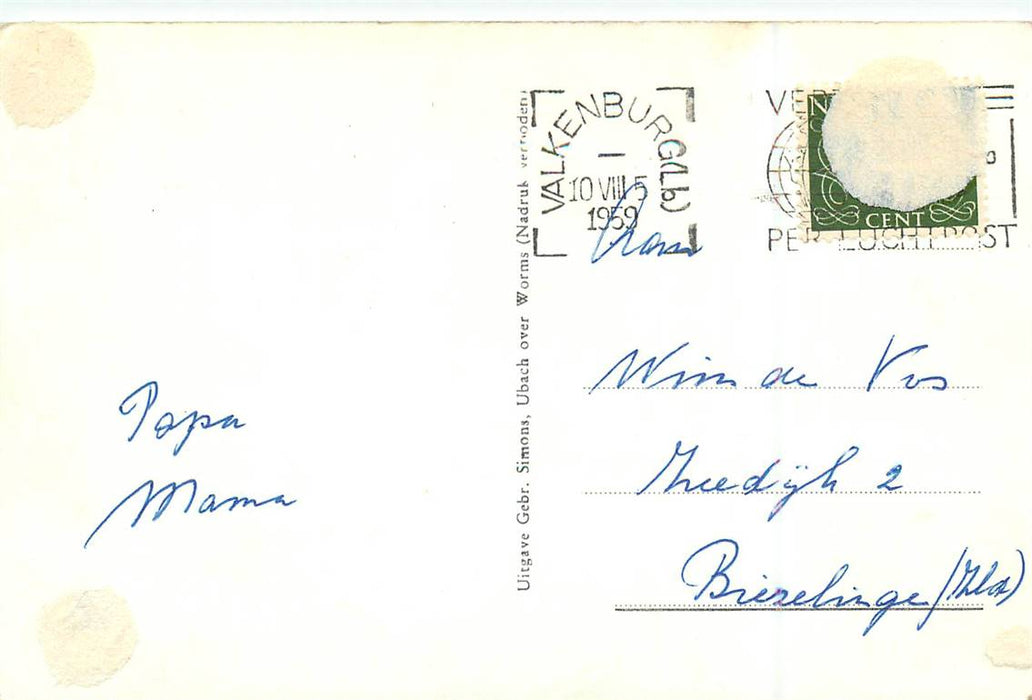 VALKENBURG (Lb)
10 VIII 5
1959
PER LUCHTPOST
CENT
Uitgave Gebr. Simons, Ubach over Worms (Nadruk verboden)
Papa
Mama
Wim de Vos
Zeedijk 2
Biezelinge (Zld)